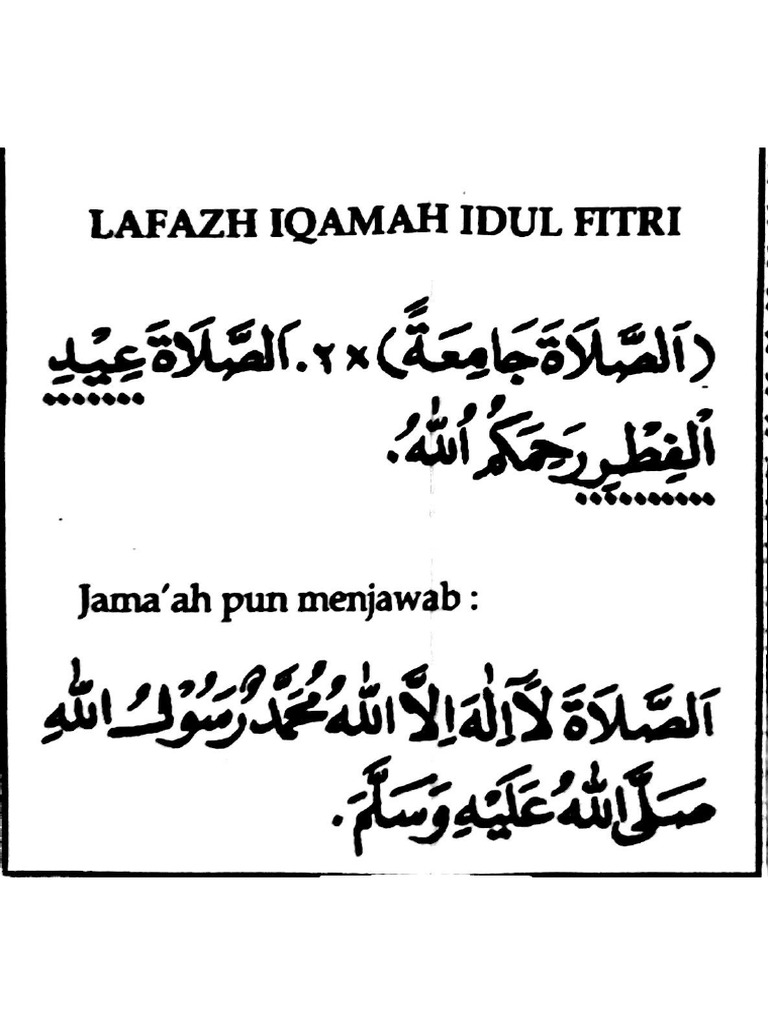 LAFAZH IQAMAH IDUL FITRI
(اَلصَّلَاةَ جَامِعَةً) × ٢. اَلصَّلَاةَ عِيْدِ
الْفِطْرِ رَحِمَكُمُ اللهُ.
Jama'ah pun menjawab :
اَلصَّلَاةَ لَآ اِلٰهَ اِلاَّ اللهُ مُحَمَّدٌ رَسُوْلُ اللهِ
صَلَّى اللهُ عَلَيْهِ وَسَلَّمَ.